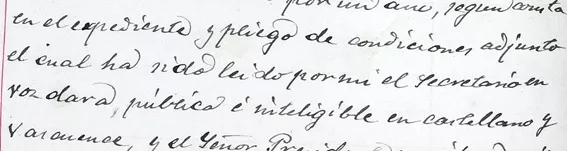 por un año, según consta
en el expediente y pliego de condiciones adjunto
el cual ha sido leido por mi el Secretario en
voz clara, pública é inteligible en castellano y
vascuence, y el Señor Presidente